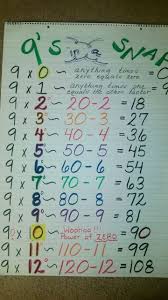 9's in a SNAP
9 x 0 ~ anything times
zero equals zero
9 x 1 ~ anything times one
equals the other factor
9 x 2 ~ 20-2 = 18
9 x 3 ~ 30-3 = 27
9 x 4 ~ 40-4 = 36
9 x 5 ~ 50-5 = 45
9 x 6 ~ 60-6 = 54
9 x 7 ~ 70-7 = 63
9 x 8 ~ 80-8 = 72
9 x 9 ~ 90-9 = 81
9 x 10 ~ Woohoo!!
Power of ZERO = 90
9 x 11 ~ 110-11 = 99
9 x 12 ~ 120-12 = 108